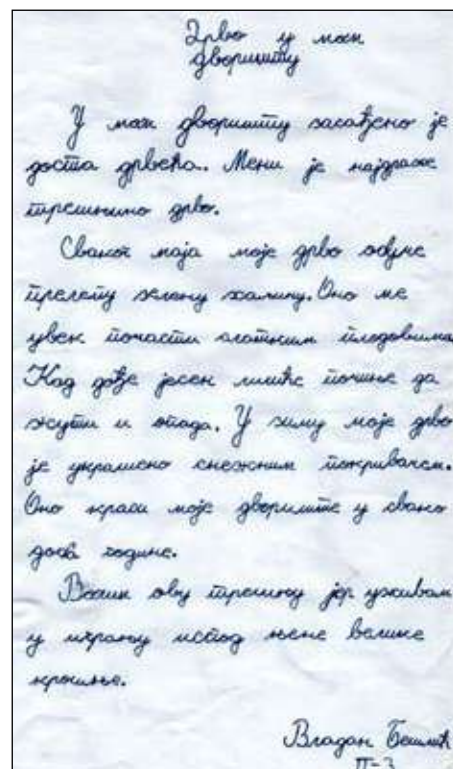 Дрво у мом
дворишту
У мом дворишту засађено је
доста дрвећа. Мени је најдраже
трешњино дрво.
Сваког маја моје дрво обуче
прелепу зелену хаљину. Оно ме
увек почасти слатким плодовима.
Кад дође јесен лишће почиње да
жути и опада. У зиму моје дрво
је украшено снежним покривачем.
Оно краси моје двориште у свако
доба године.
Волим ову трешњу јер уживам
у игрању испод њене велике
крошње.
Владан Бешлић
II-3